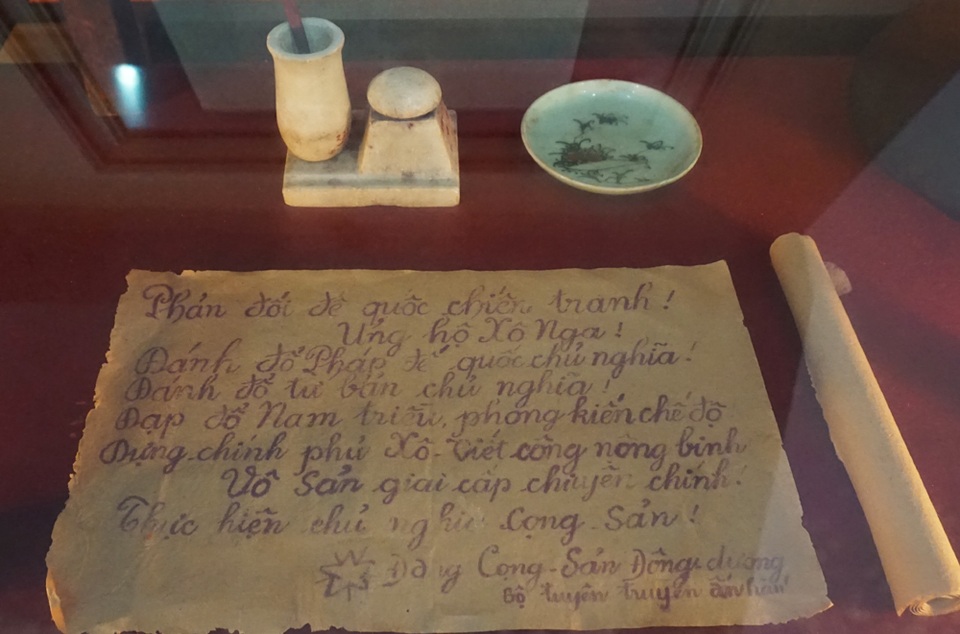 Phản đối đế quốc chiến tranh!
Ủng hộ Xô Nga!
Đánh đổ Pháp đế quốc chủ nghĩa!
Đánh đổ tư bản chủ nghĩa!
Đạp đổ Nam triều, phong kiến chế độ
Dựng chính phủ Xô-Viết công nông binh
Vô Sản giai cấp chuyên chính!
Thực hiện chủ nghĩa Cộng-Sản!
Đảng Cộng-Sản Đông dương
Bộ tuyên truyền ấn hành